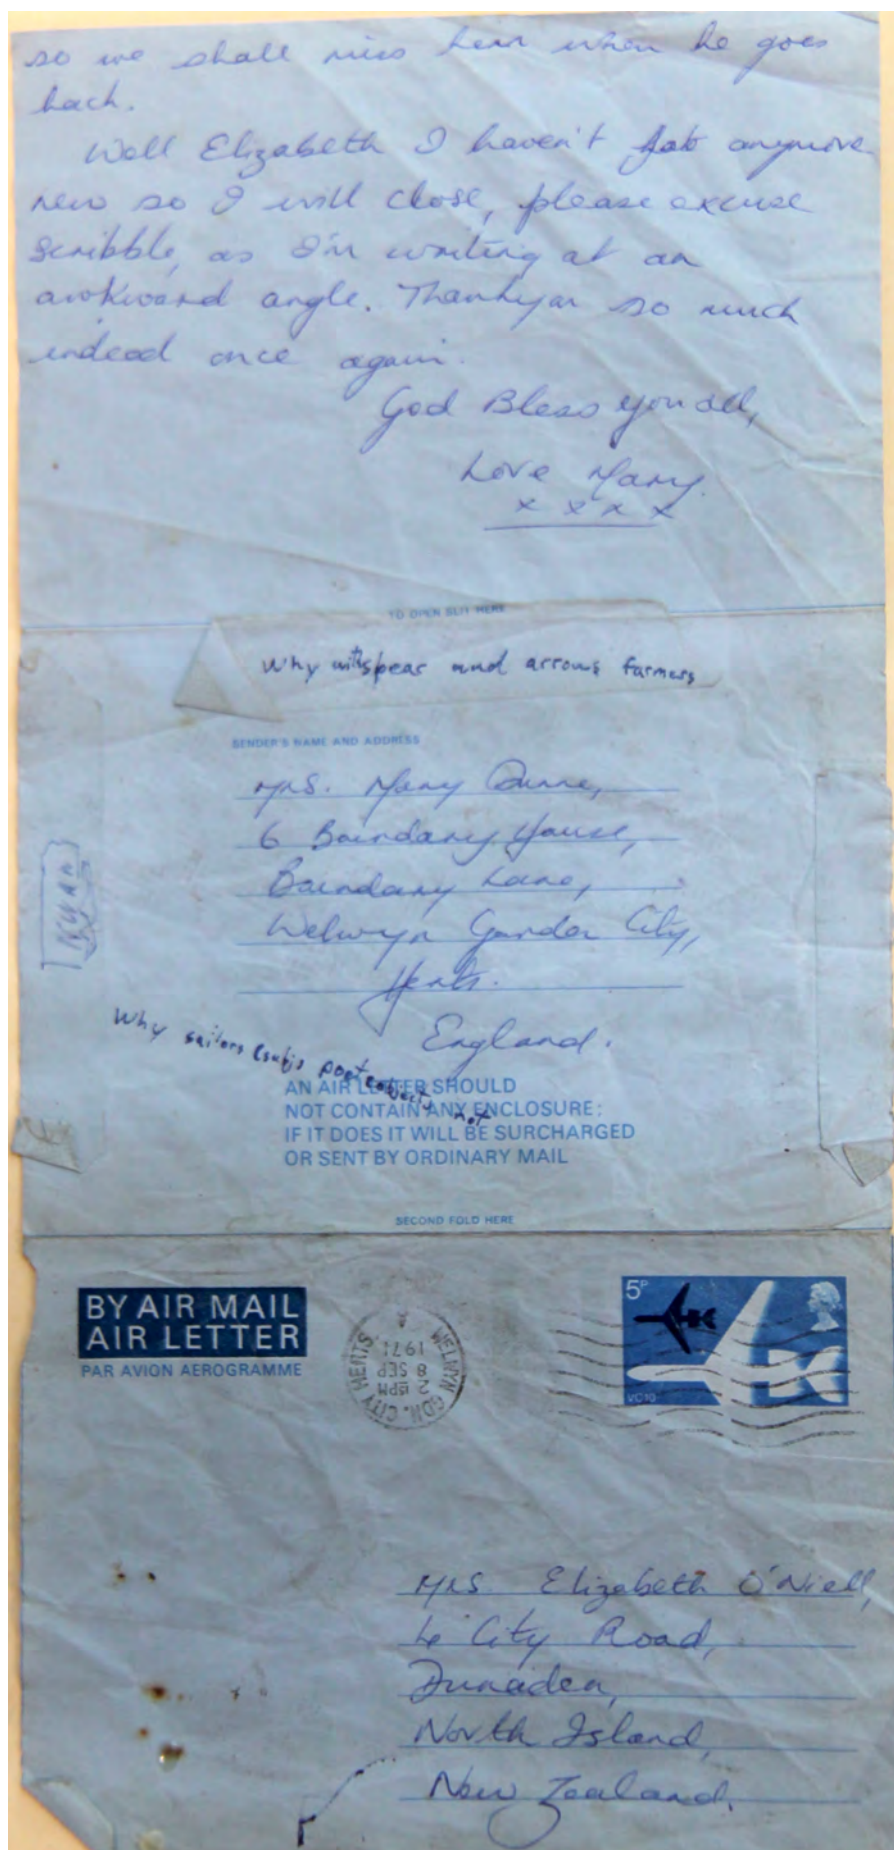 so we shall miss hear when he goes
back.
Well Elizabeth I haven't got anymore
new so I will close, please excuse
scribble, as I'm writing at an
awkward angle. Thankyou so much
indeed once again.
God Bless you all,
Love Mary.
x x x x
TO OPEN SLIT HERE
Why with spear and arrows farmers
SENDER'S NAME AND ADDRESS
Mrs. Mary Dunne,
6 Boundary House,
Boundary Lane,
Welwyn Garden City,
Herts.
England.
Ryan
Why sailors poet objects not
AN AIR LETTER SHOULD
NOT CONTAIN ANY ENCLOSURE:
IF IT DOES IT WILL BE SURCHARGED
OR SENT BY ORDINARY MAIL
SECOND FOLD HERE
BY AIR MAIL
AIR LETTER
PAR AVION AEROGRAMME
WELWYN GDN. CITY HERTS.
2 PM
8 SEP
1971
A
5P
VC10
Mrs. Elizabeth O'Niell,
4 City Road,
Dunaden,
North Island,
New Zealand.